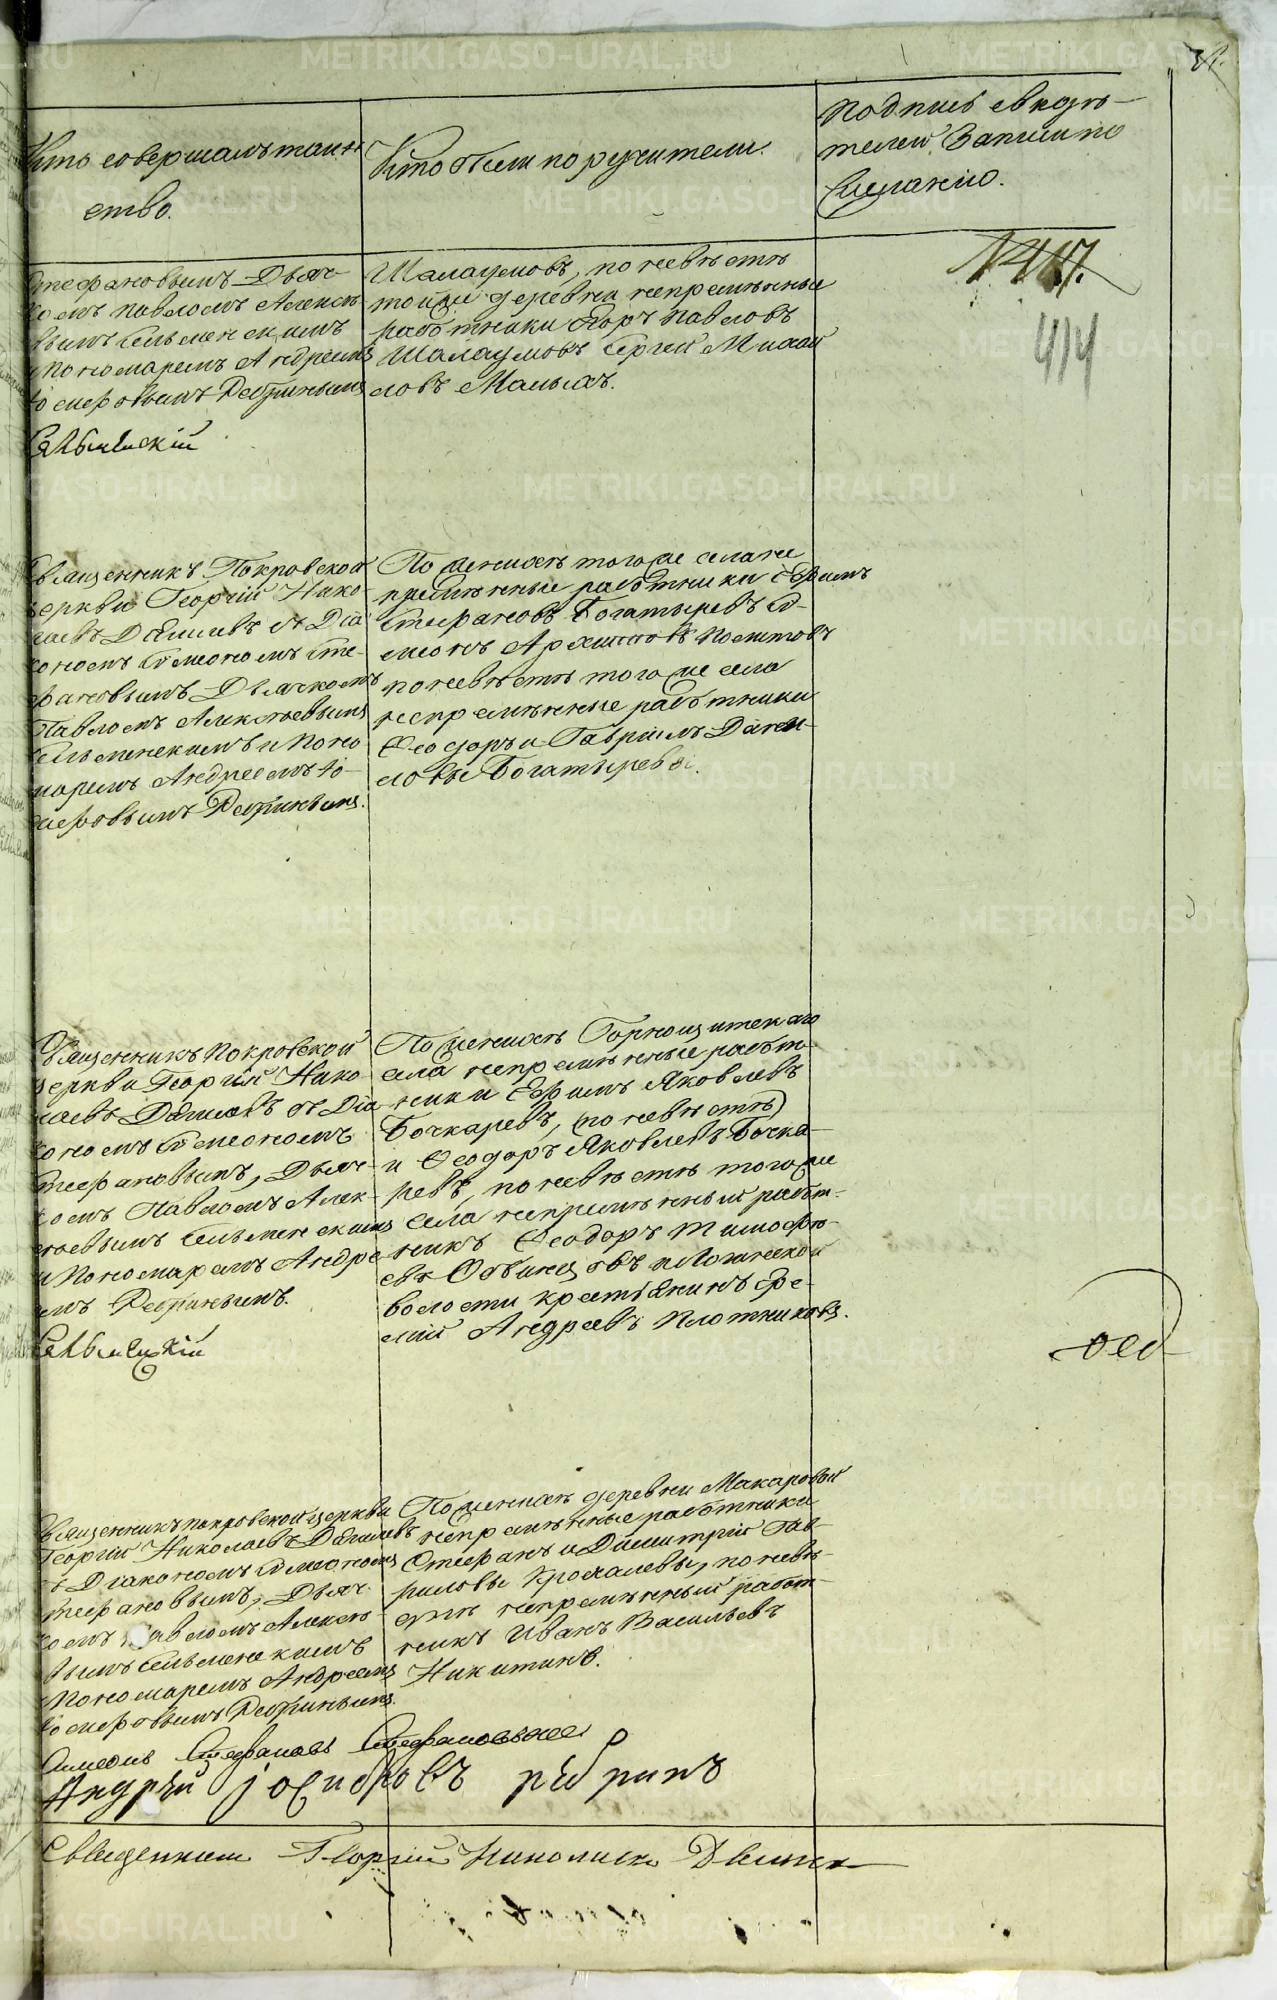 Кто совершалъ таин-
ство.
Кто были поручители.
Подпись свидѣ-
телей записи по
желанію.
№ 417.
414
Стефановымъ Дьяч-
комъ Павломъ Алексѣ-
вымъ Сельменскимъ
и Пономаремъ Андреемъ
Іосифовымъ Рѣбринымъ
Сельменскій
Шалаумовъ, по невѣстѣ
тойже деревни непремѣнные
работники Егоръ Павловъ
Шалаумовъ Сергей Михай
ловъ Малыхъ.
Священникъ Покровской
церкви Георгій Нико-
лаевъ съ Діа
кономъ Симеономъ Сте-
фановымъ Дьячкомъ
Павломъ Алексѣевымъ
Сельменскимъ и Поно
маремъ Андреемъ Іо-
сифовымъ Рѣбринымъ.
По женихѣ тогоже села не
премѣнные работники Ефимъ
Стефановъ Богатыревъ Си-
меонъ
по невѣстѣ тогоже села
непремѣнные работники
Феодоръ и Гавріилъ Дани-
ловы Богатыревы.
Священникъ Покровской
церкви Георгій Нико-
лаевъ съ Діа
кономъ Симеономъ
Стефановымъ, Дьяч-
комъ Павломъ Алек-
сѣевымъ Сельменскимъ
и Пономаремъ Андре-
емъ Рѣбринымъ.
Сельменскій
По женихѣ Горнощитскаго
села непремѣнные работ-
ники Ефимъ Яковлевъ
Бочкаревъ, (по невѣстѣ)
и Феодоръ Яковлевъ Бочка-
ревъ, по невѣстѣ тогоже
села непремѣнный работ-
никъ Феодоръ Тимофѣ-
евъ и
волости крестьянинъ Ере-
мѣй Андреевъ Плотниковъ.
Священникъ Покровской церкви
Георгій Николаевъ
съ Діакономъ Симеономъ
Стефановымъ, Дьяч-
комъ Павломъ Алексѣ-
вымъ Сельменскимъ
и Пономаремъ Андреемъ
Іосифовымъ Рѣбринымъ.
По женихѣ деревни Макаровой
непремѣнные работники
Стефанъ и Димитрій Гав-
риловы Крохалевы, по невѣ-
стѣ непремѣнный работ-
никъ Иванъ Васильевъ
Никитинъ.
Симеонъ Стефановъ
Андрѣй Іосифовъ рѣбринъ
Священникъ Георгій Николаевъ
METRIKI.GASO-URAL.RU